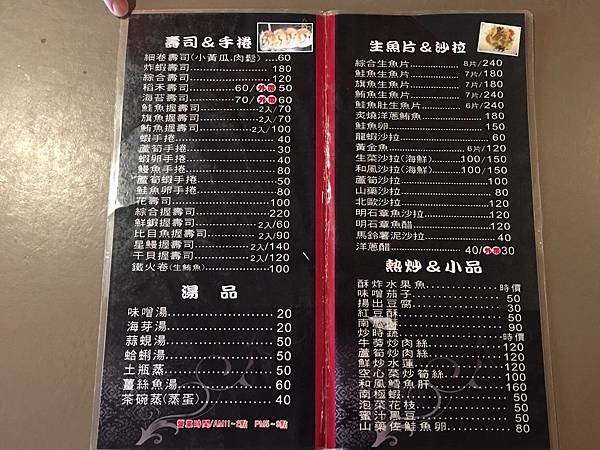 壽司&手捲
細卷壽司(小黃瓜.肉鬆)....60
炸蝦壽司....180
綜合壽司....120
稻禾壽司....60/外帶50
海苔壽司....70/外帶60
鮭魚握壽司....2入/70
旗魚握壽司....2入/70
鮪魚握壽司....2入/100
蝦手捲....40
蘆筍手捲....30
蝦卵手捲....40
鰻魚手捲....80
蘆筍蝦手捲....50
鮭魚卵手捲....80
花壽司....100
綜合握壽司....220
鮮蝦握壽司....2入/60
比目魚握壽司....2入/90
星鰻握壽司....2入/140
干貝握壽司....2入/120
鐵火卷(生鮪魚)....100
湯 品
味噌湯....20
海芽湯....20
蒜蜆湯....50
蛤蜊湯....50
土瓶蒸....50
薑絲魚湯....60
茶碗蒸(蒸蛋)....40
營業時間/AM11~2點 PM5~9點
生魚片&沙拉
綜合生魚片....8片/240
鮭魚生魚片....7片/180
旗魚生魚片....7片/180
鮪魚生魚片....7片/240
鮭魚肚生魚片....6片/240
炙燒洋蔥鮪魚....180
鮭魚卵....150
龍蝦沙拉....90
黃金魚....6片/120
生菜沙拉(海鮮)....100/150
和風沙拉(海鮮)....100/150
蘆筍沙拉....100
山藥沙拉....80
北歐沙拉....120
明石章魚沙拉....120
明石章魚醋....120
馬鈴薯泥沙拉....120
洋蔥醋....40/外帶30
熱炒&小品
酥炸水果魚....時價
味噌茄子....50
揚出豆腐....30
紅豆酥....50
南....90
炒時蔬....時價
牛蒡炒肉絲....120
蘆筍炒肉絲....120
鮮炒水蓮....120
空心菜炒筍絲....100
和風鱈魚肝....160
南極蝦....50
泡菜花枝....50
蜜汁黑豆....50
山藥佐鮭魚卵....80